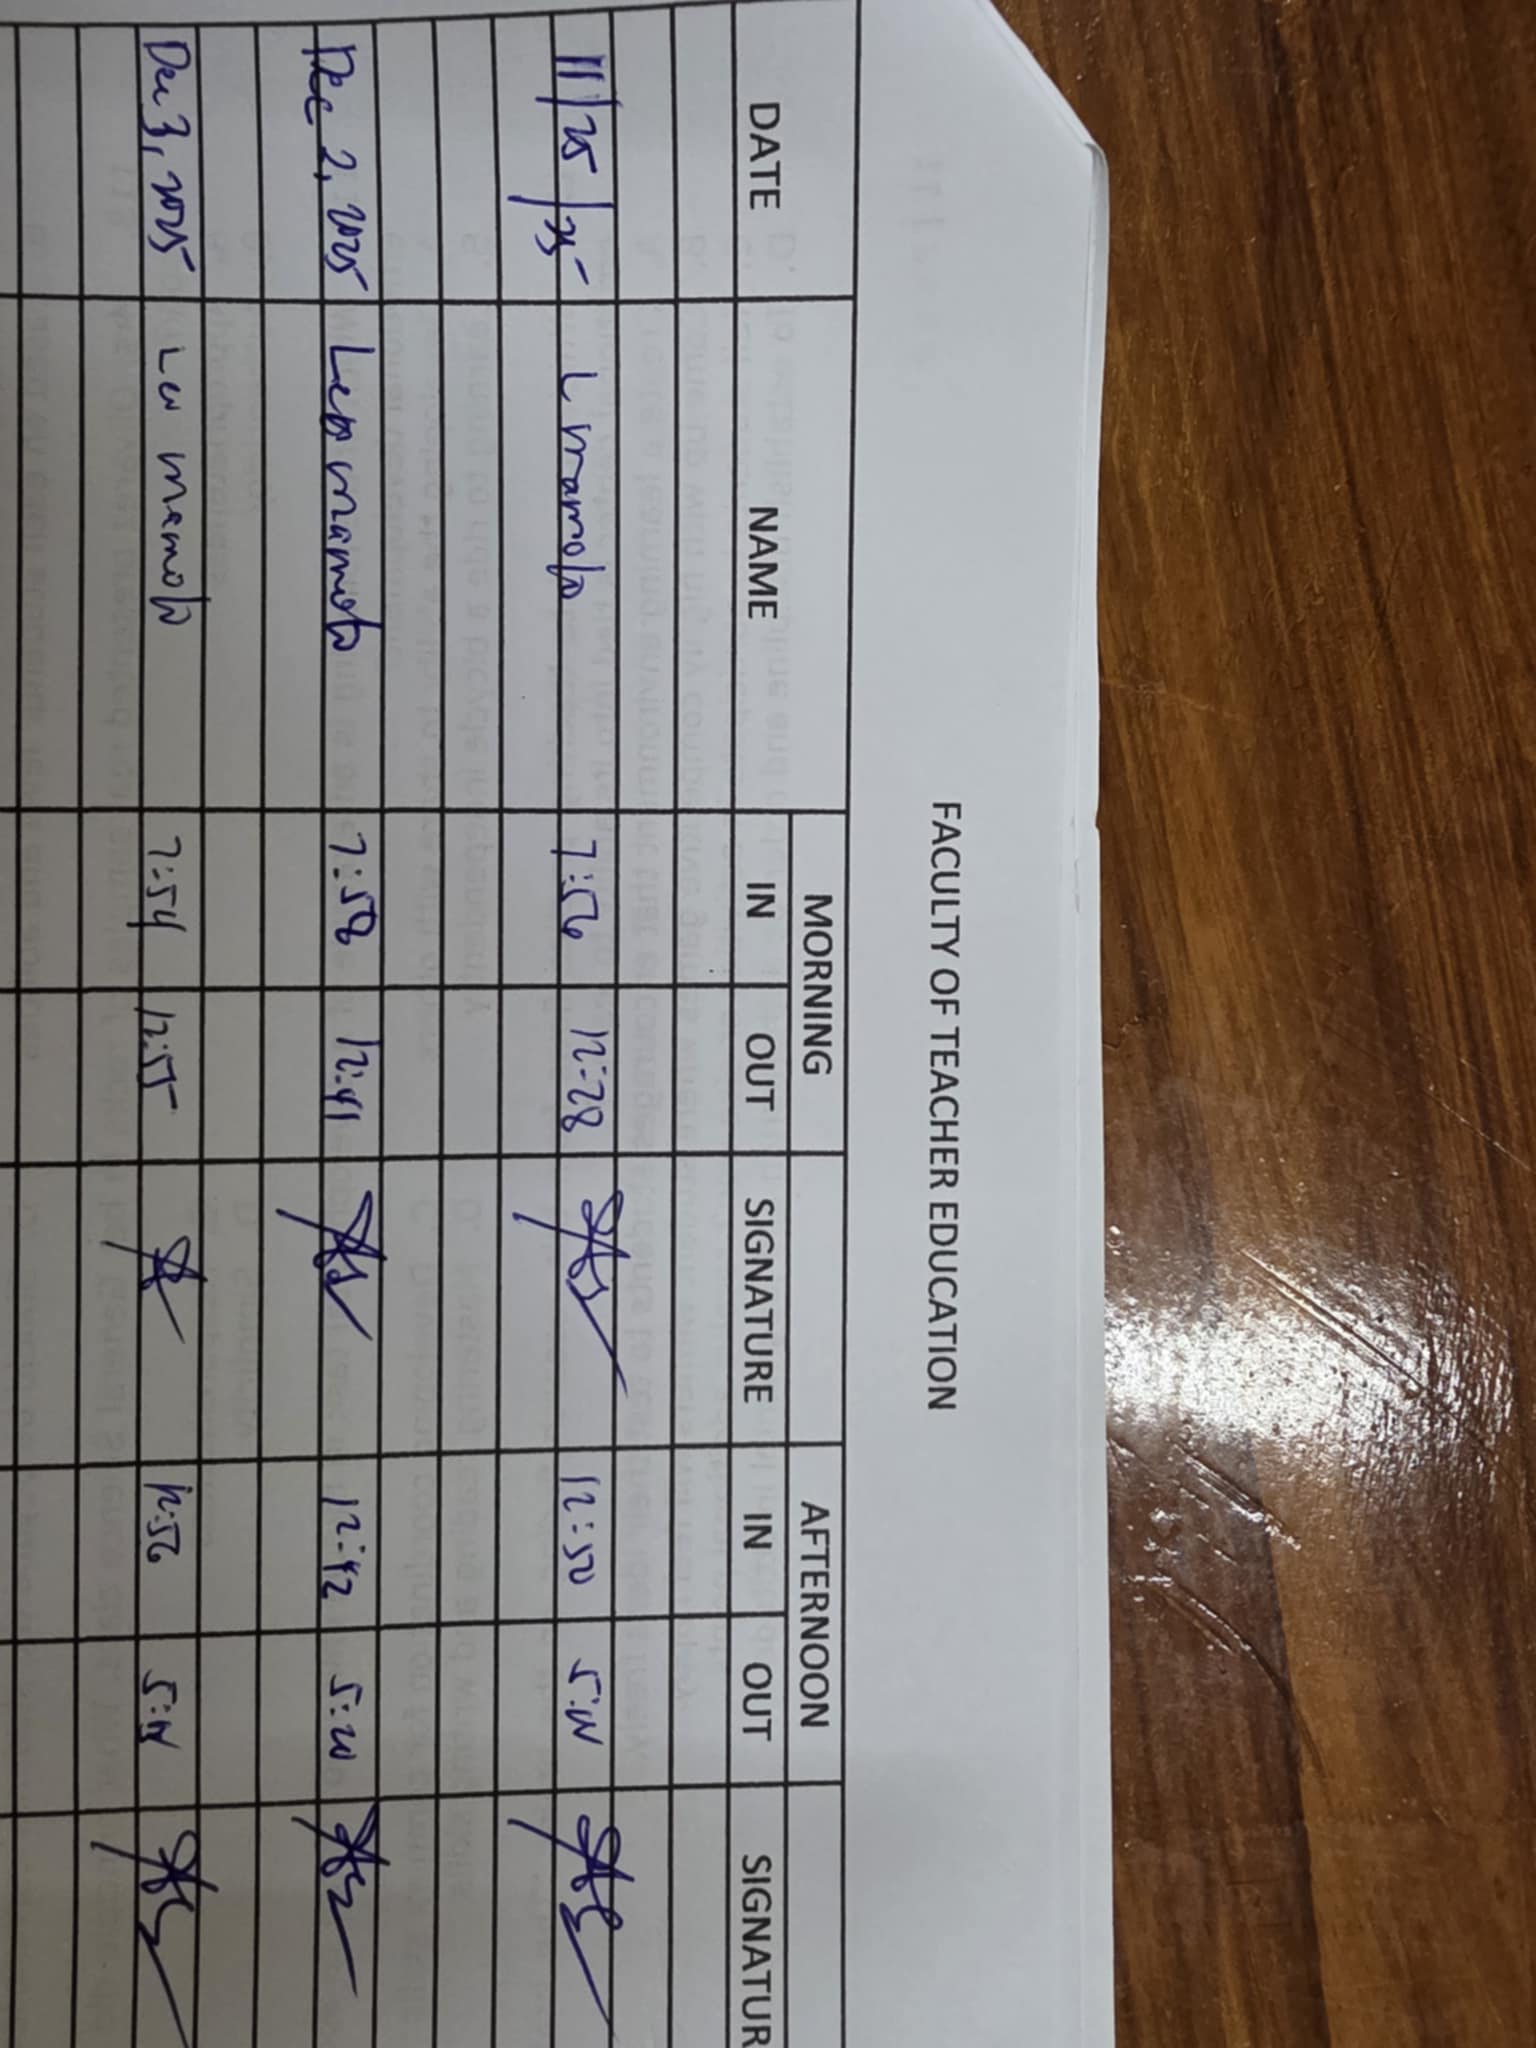 FACULTY OF TEACHER EDUCATION
MORNING AFTERNOON
DATE NAME IN OUT SIGNATURE IN OUT SIGNATUR
11/25/25 L mamolo 7:56 12:28 12:50
Dec 2, 2025 Leo mamolo 7:58 12:41 12:42 5:20
Dec 3, 2025 Leo mamolo 7:54 12:55 12:56